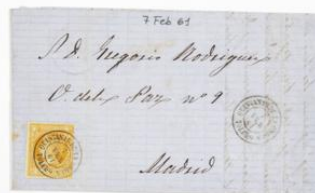 7 Feb 61
S. D. Gregorio Rodriguez
C. de la Paz nº 9
Madrid